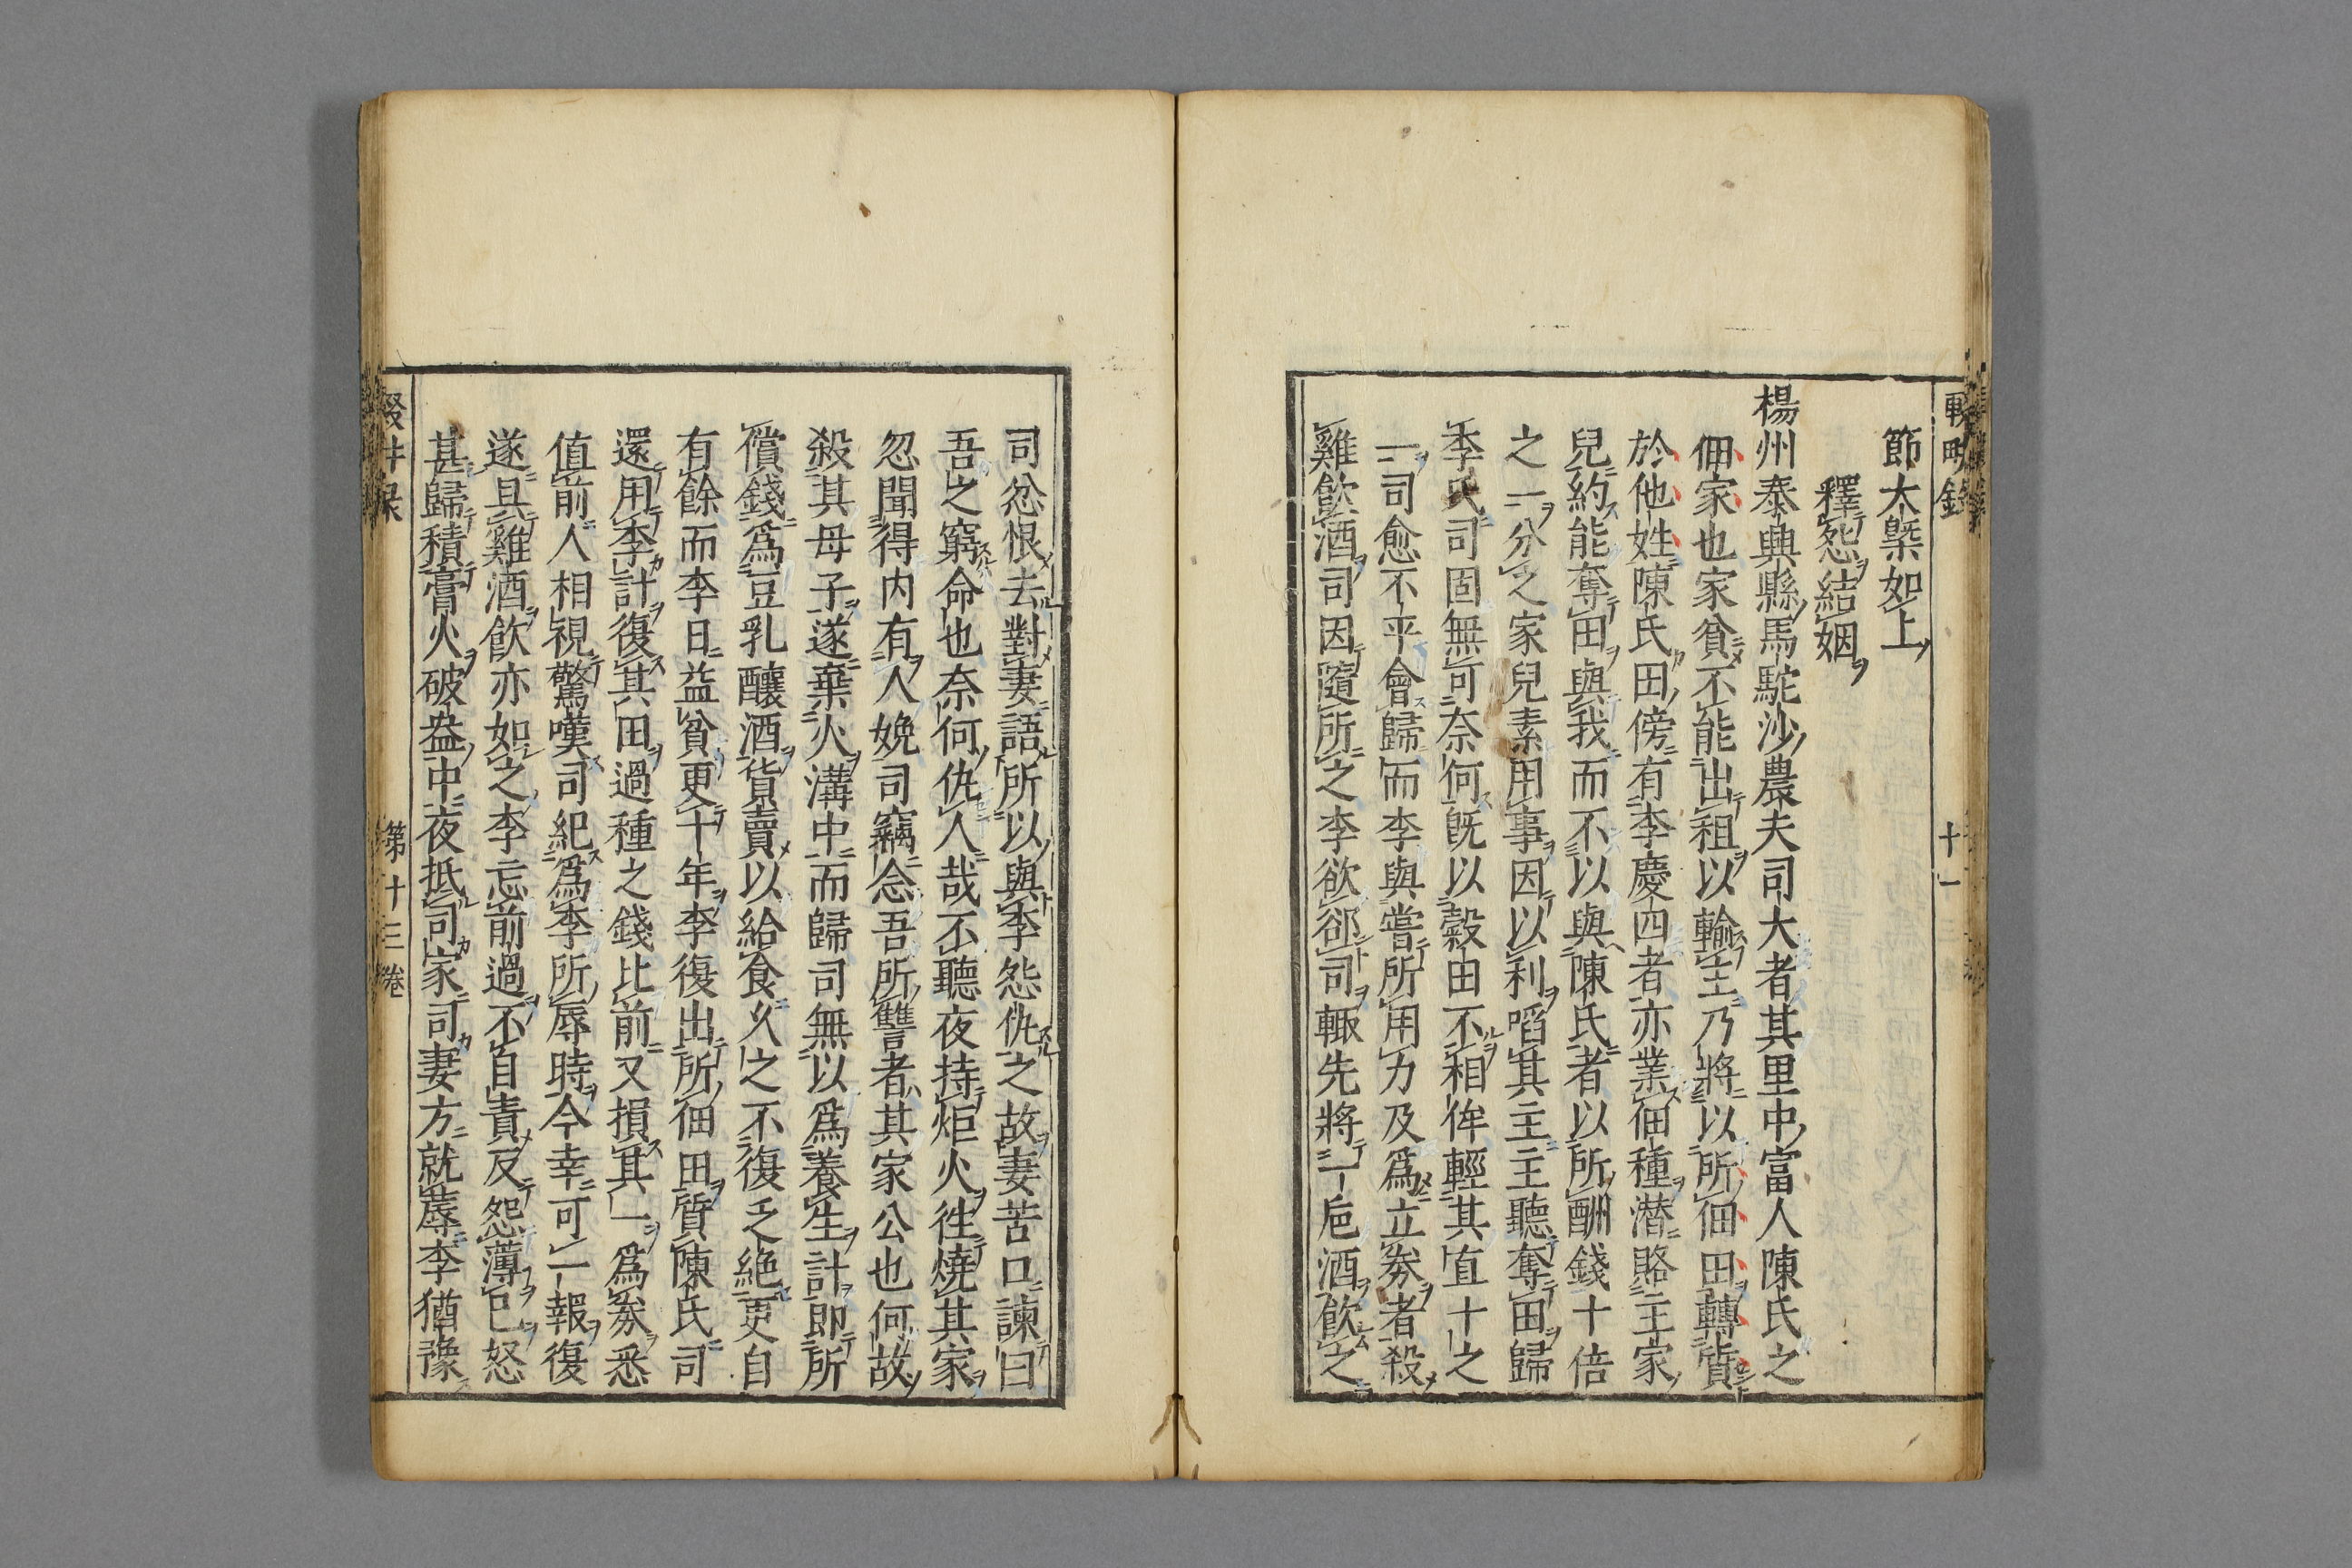 十一
節大槩如上
釋怨結姻
楊州泰興縣馬駝沙農夫司大者其里中富人陳氏之
佃家也家貧不能出租以輸主乃將以所佃田轉質
於他姓陳氏田傍有李慶四者亦業佃種潜賂主家
兒約能奪田與我而不以與陳氏者以所酬錢十倍
之一分之家兒素用事因以利啗其主主聽奪田歸
李氏司固無可奈何既以穀田不相侔輕其直十之
一司愈不平會歸而李與嘗所用力及爲立劵者殺
雞飲酒司因隨所之李欲卻司輙先將一巵酒飲之
司忿恨去對妻語所以與李怨仇之故妻苦口諫曰
吾之窮命也奈何仇人哉不聽夜持炬火徃燒其家
忽聞得内有人娩司竊念吾所讐者其家公也何故
殺其母子遂棄火溝中而歸司無以爲養生計即所
償錢爲豆乳釀酒貨賣以給食久之不復乏絶更自
有餘而李日益貧更十年李復出所佃田質陳氏司
還用李計復其田過種之錢比前又損其一爲劵悉
值前人相視驚嘆司紀爲李所辱時今幸可一報復
遂具雞酒飲亦如之李忘前過不自責反怨薄巳怒
甚歸積膏火破盎中夜抵司家司妻方就蓐李猶豫
第十三卷